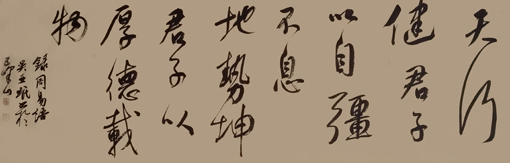 天行
健君子
以自彊
不息
地勢坤
君子以
厚德載
物
錄周易語